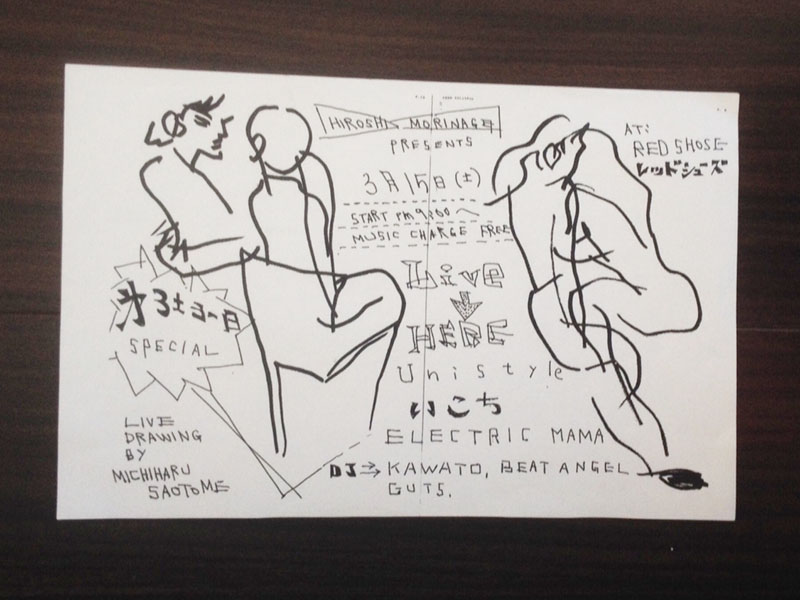 HIROSHI MORINAGA
PRESENTS
3月15日(土)
START PM9:00〜
MUSIC CHARGE FREE
Live
HERE
Unistyle
いこち
ELECTRIC MAMA
DJ⇒KAWATO, BEAT ANGEL
GUTS.
AT:
RED SHOSE
レッドシューズ
SPECIAL
LIVE
DRAWING
BY
MICHIHARU
SAOTOME